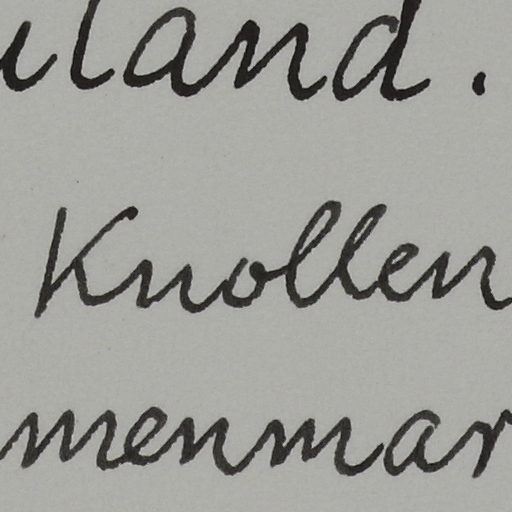 uland.
Knollen
menmar